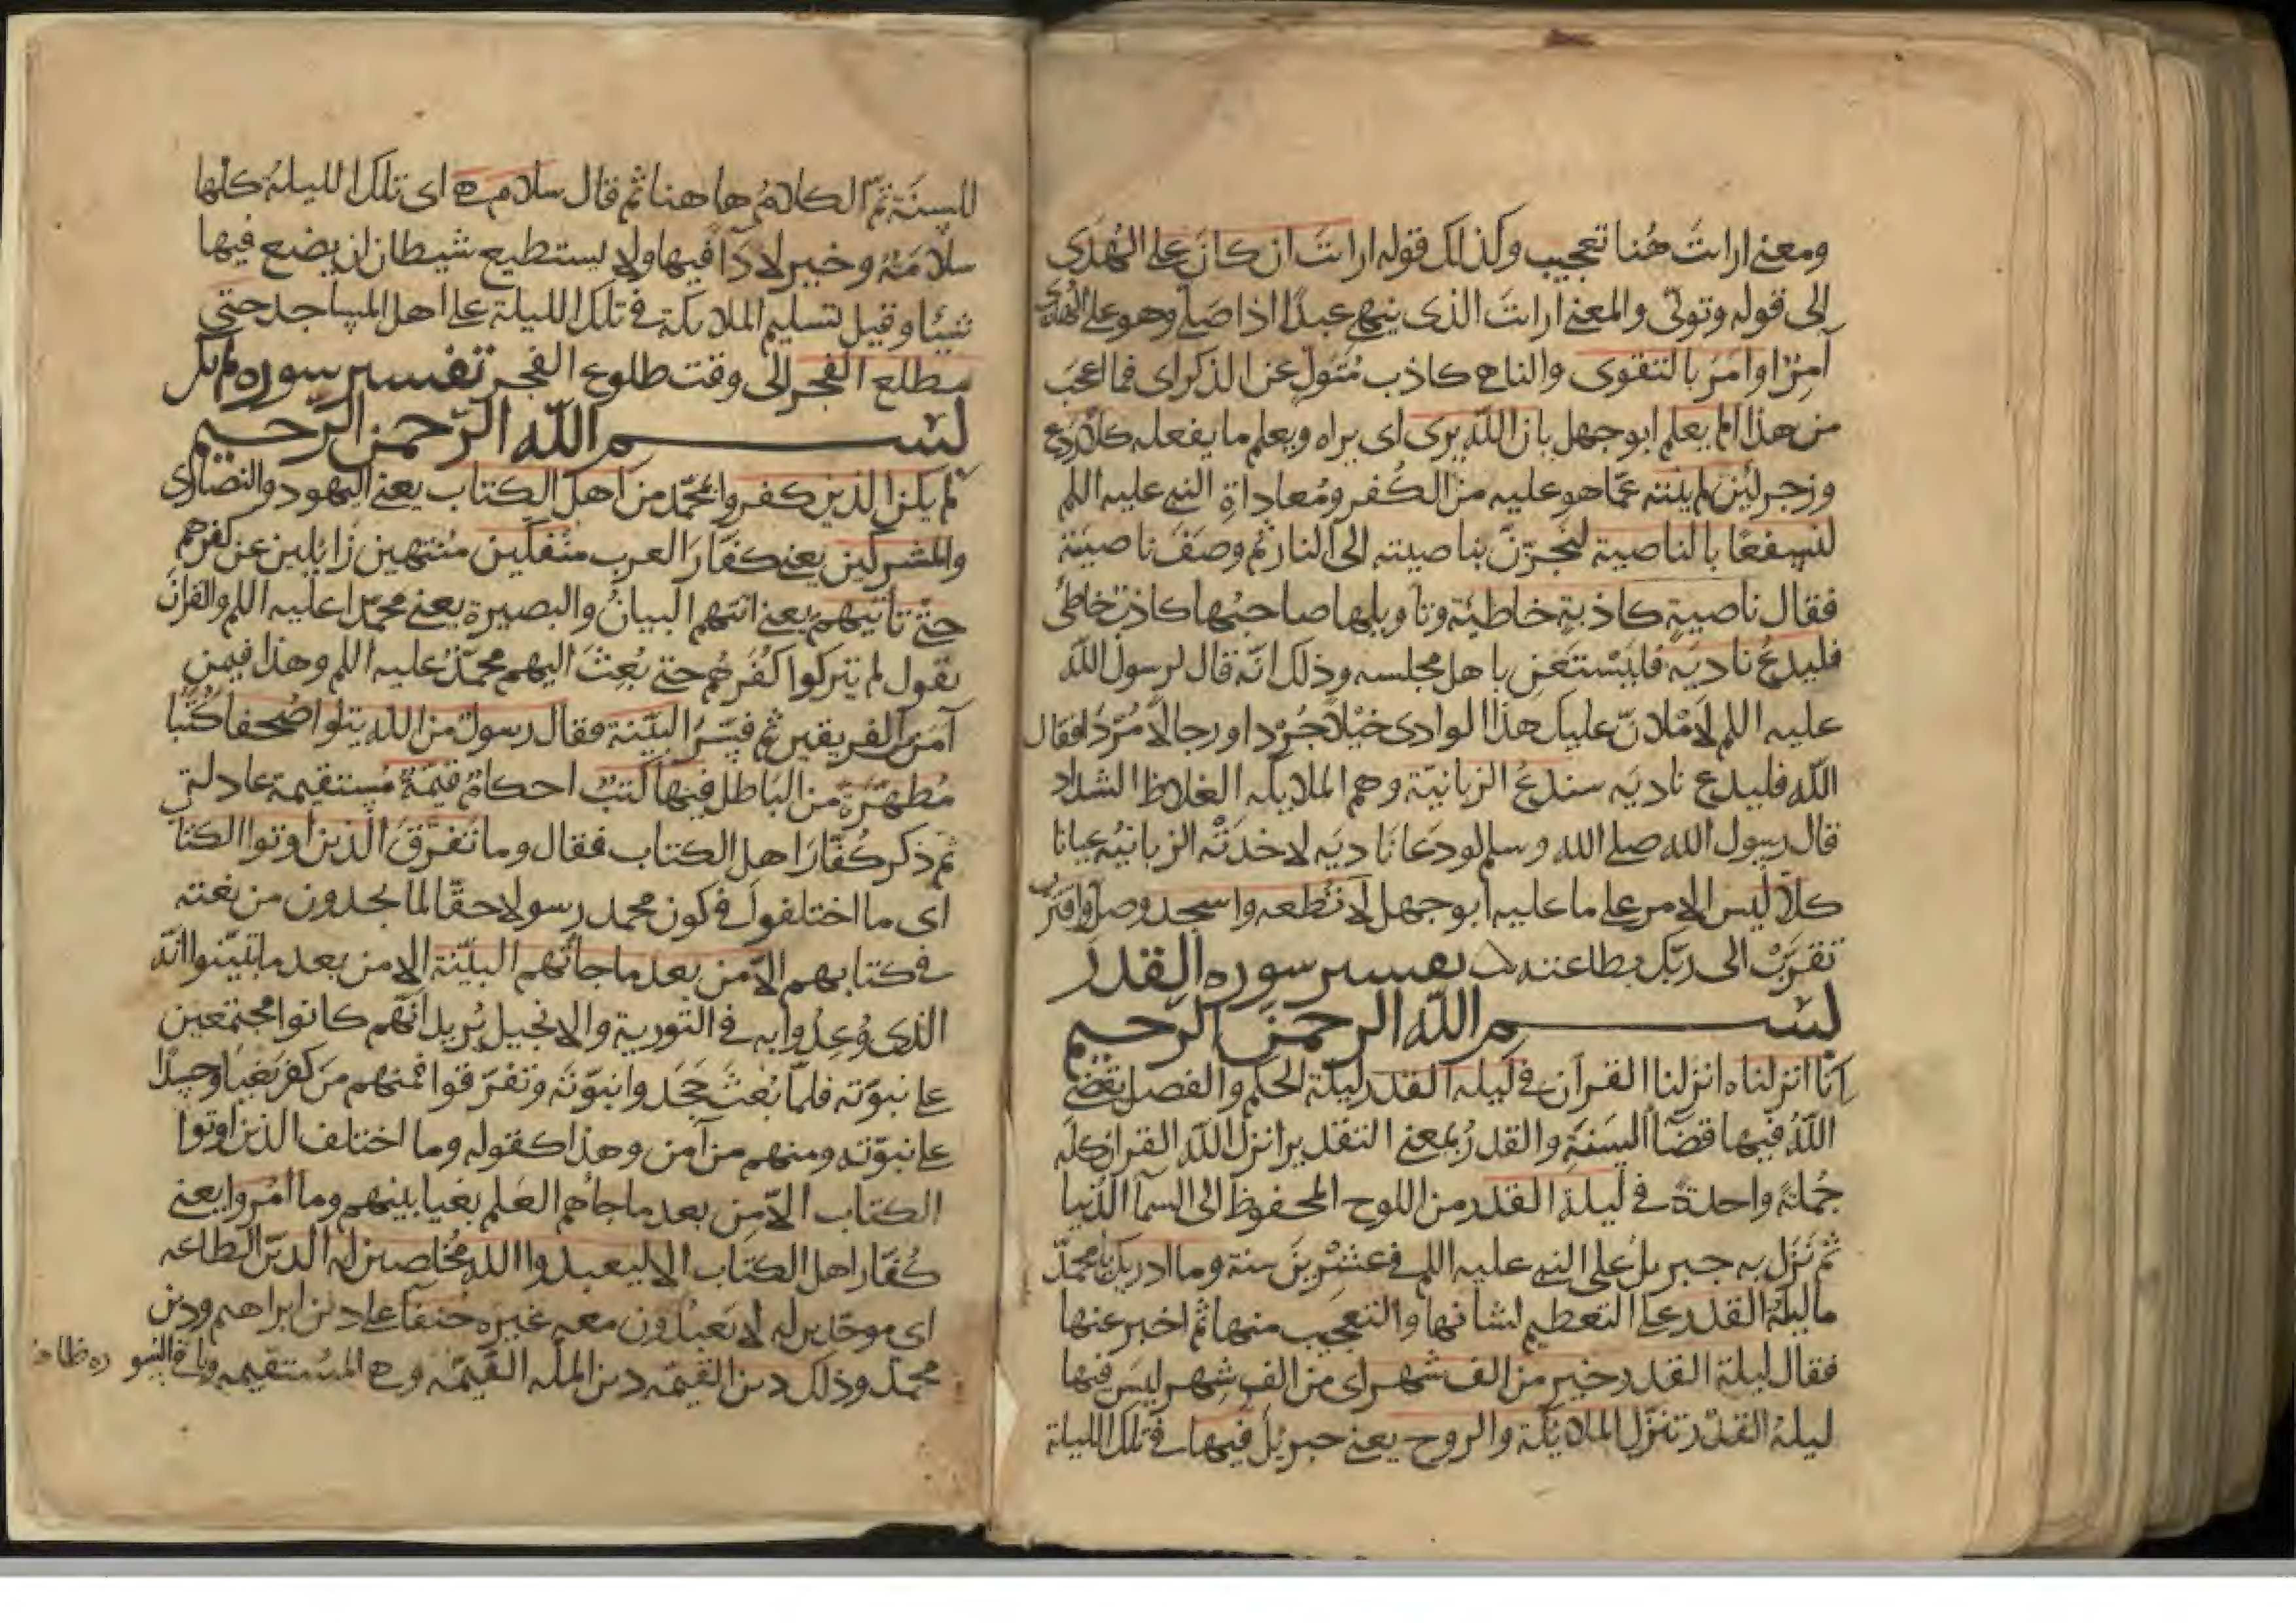 ومعنى ارايت هنا تعجيب وكذلك قوله ارايت ان كان على الهدى
الى قوله وتولى والمعنى ارايت الذى ينهى عبدا اذا صلى وهو على الهدى
آمِرٌ او امر بالتقوى والناهى كاذب متول عن الذكر اى فما اعجب
من هذا الم يعلم ابو جهل بان الله يرى اى يراه ويعلم ما يفعله كلا ردع
وزجر لئن لم ينته عما هو عليه من الكفر ومعاداة النبى عليه اللم
لنسفعا بالناصية لنجرّنّ بناصيته الى النار ثم وصف ناصيته
فقال ناصية كاذبة خاطئة وتاويلها صاحبها كاذب خاطئ
فليدع ناديه فليستغن باهل مجلسه وذلك انه قال لرسول الله
عليه اللم لاملانّ عليك هذا الوادى خيلا جُرْدا ورجالا مُرّدا فقال
الله فليدع ناديه سندع الزبانية وهم الملايكه الغلاظ الشداد
قال رسول الله صلى الله وسلم لو دعا ناديه لاخذته الزبانية عيانا
كلا ليس الامر على ما عليه ابو جهل لا تطعه واسجد وصل واقترب
تقرّب الى ربك بطاعته تفسير سوره القدر
بسم الله الرحمن الرحيم
انا انزلناه انزلنا القرآن فى ليله القدر ليلة الحكم والفصل يقضى
الله فيها قضآ السنة والقدر بمعنى التقدير انزل الله القران كله
جُملة واحدة فى ليلة القدر من اللوح المحفوظ الى السمآ الدنيا
ثم نَزَل به جبريل على النبى عليه اللم فى عشرين سنة وما ادريك يا محمد
ما ليلة القدر على التعظيم لشانها والتعجيب منها ثم اخبر عنها
فقال ليلة القدر خير من الف شهر اى من الف شهر ليس فيها
ليلة القدر تنزل الملائكة والروح يعنى جبريل فيها فى تلك الليلة
للسنة تمّ الكلام هاهنا ثم قال سلام هى اى تلك الليلة كلها
سلامة وخير لا دآ فيها ولا يستطيع شيطان ان يضع فيها
شيئا وقيل تسليم الملايكة فى تلك الليلة على اهل المساجد حتى
مطلع الفجر الى وقت طلوع الفجر تفسير سوره لم يكن
بسم الله الرحمن الرحيم
لم يكن الذين كفروا بمحمّد من اهل الكتاب يعنى اليهود والنصارى
والمشركين يعنى كفار العرب منفكين منتهين زائلين عن كفرهم
حتى تاتيهم يعنى اتتهم البيان والبصيرة يعنى محمّدا عليه اللم والقران
يقول لم يتركوا كفرهم حتى بُعِثَ اليهم محمّد عليه اللم وهذا فيمن
آمن من الفريقين ثم فسّر البيّنة فقال رسول من الله يتلوا صحفا كُتُبًا
مُطهّرة من الباطل فيها كتب احكام قيّمة مستقيمة عادلة
ثم ذكر كُفّار اهل الكتاب فقال وما تفرّق الذين اوتوا الكتا
اى ما اختلفوا فى كون محمد رسولا حقّا لما يجدون من نعته
فى كتابهم الّا من بعد ما جآتهم البيّنة الا من بعد ما تبيّنوا انّه
الذى وُعِدُوا به فى التورية والانجيل يُريد انّهم كانوا مجتمعين
على نبوّته فلمّا بُعث جحدوا نبوّته وتفرّقوا فمنهم من كفر بغيا وحسدا
على نبوّته ومنهم من آمن وهذا كقوله وما اختلف الذين اوتوا
الكتاب الّا من بعد ما جآهم العلم بغيا بينهم وما امروا يعنى
كُفّار اهل الكتاب الا ليعبدوا الله مُخلصين له الدين الطاعه
اى موحّدين له لا يعبدون معه غيره حنفآ على دين ابراهيم ودين
محمد وذلك دين القيّمه دين الملّه القيّمه وهى المستقيمه وباقى السوره ظاهر